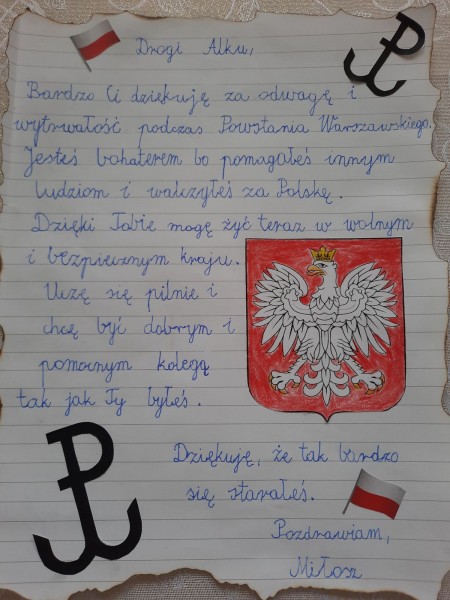 Drogi Alku,
Bardzo Ci dziękuję za odwagę i
wytrwałość podczas Powstania Warszawskiego.
Jesteś bohaterem bo pomagałeś innym
ludziom i walczyłeś za Polskę.
Dzięki Tobie mogę żyć teraz w wolnym
i bezpiecznym kraju.
Uczę się pilnie i
chcę być dobrym i
pomocnym kolegą
tak jak Ty byłeś.
Dziękuję, że tak bardzo
się starałeś.
Pozdrawiam,
Miłosz